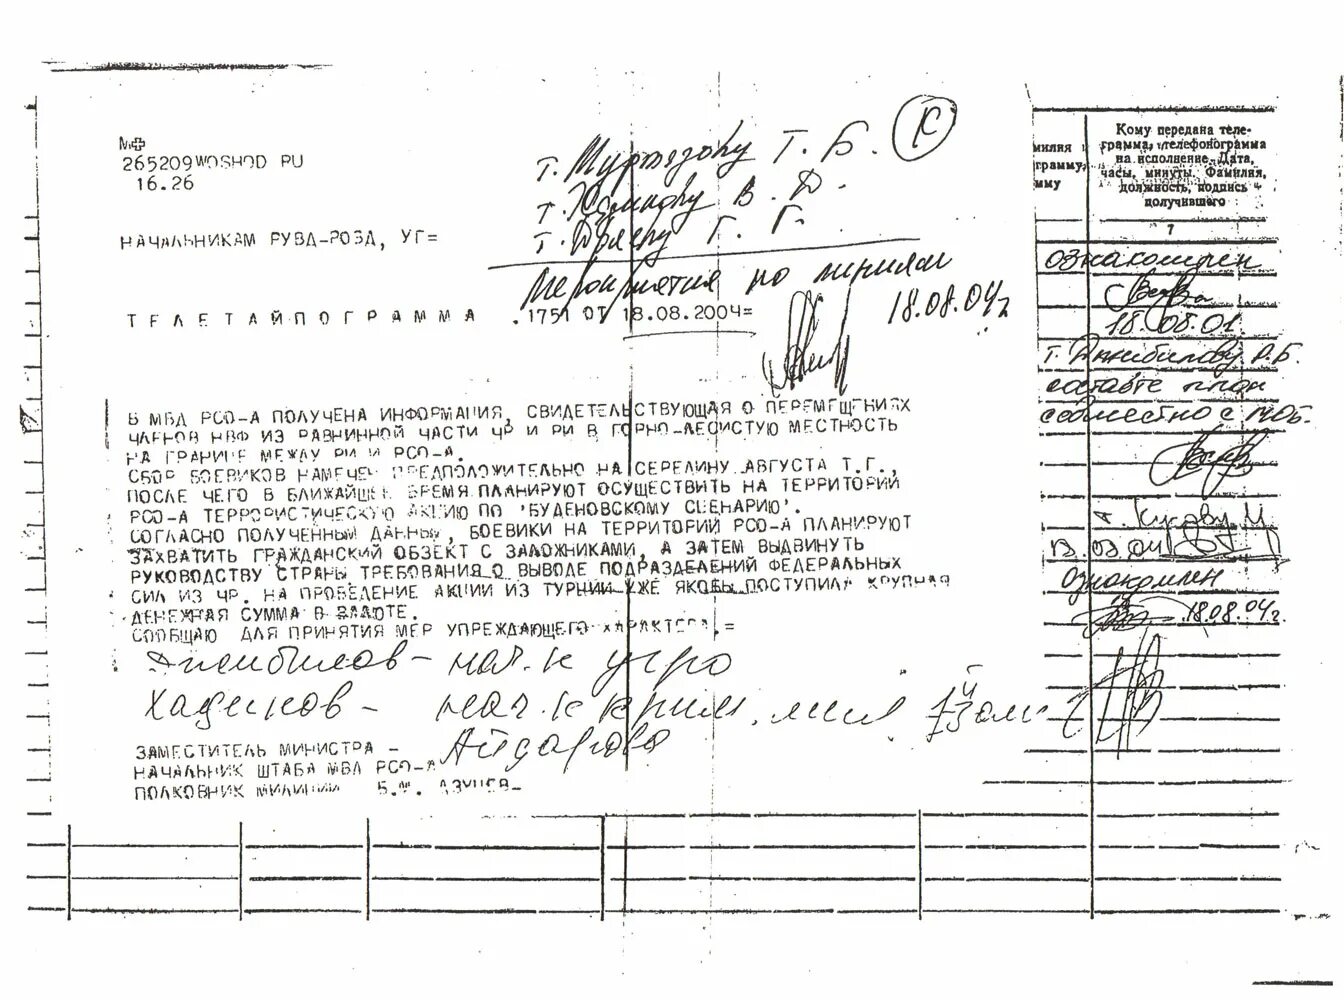 265209WOSHOD РU
16.26
т. Муртазову Т. Б.
К
В. Д.
Г. Г.
НАЧАЛЬНИКАМ РУВД-РОВД, УГ=
Мероприятия по линиям
18.08.04г
ТЕЛЕТАЙПОГРАММА .1751 ОТ 18.08.2004=
В МВД РСО-А ПОЛУЧЕНА ИНФОРМАЦИЯ, СВИДЕТЕЛЬСТВУЮЩАЯ О ПЕРЕМЕЩЕНИЯХ
ЧЛЕНОВ НВФ ИЗ РАВНИННОЙ ЧАСТИ ЧР И РИ В ГОРНО-ЛЕСИСТУЮ МЕСТНОСТЬ
НА ГРАНИЦЕ МЕЖДУ РИ И РСО-А.
СБОР БОЕВИКОВ НАМЕЧЕН ПРЕДПОЛОЖИТЕЛЬНО НА СЕРЕДИНУ АВГУСТА Т.Г.,
ПОСЛЕ ЧЕГО В БЛИЖАЙШЕЕ ВРЕМЯ ПЛАНИРУЮТ ОСУЩЕСТВИТЬ НА ТЕРРИТОРИЙ
РСО-А ТЕРРОРИСТИЧЕСКУЮ АКЦИЮ ПО 'БУДЕНОВСКОМУ СЦЕНАРИЮ'.
СОГЛАСНО ПОЛУЧЕННЫМ ДАННЫМ, БОЕВИКИ НА ТЕРРИТОРИЙ РСО-А ПЛАНИРУЮТ
ЗАХВАТИТЬ ГРАЖДАНСКИЙ ОБЪЕКТ С ЗАЛОЖНИКАМИ, А ЗАТЕМ ВЫДВИНУТЬ
РУКОВОДСТВУ СТРАНЫ ТРЕБОВАНИЯ О ВЫВОДЕ ПОДРАЗДЕЛЕНИЙ ФЕДЕРАЛЬНЫХ
СИЛ ИЗ ЧР. НА ПРОВЕДЕНИЕ АКЦИИ ИЗ ТУРЦИИ УЖЕ ЯКОБЫ ПОСТУПИЛА КРУПНАЯ
ДЕНЕЖНАЯ СУММА В ВАЛЮТЕ.
СООБЩАЮ ДЛЯ ПРИНЯТИЯ МЕР УПРЕЖДАЮЩЕГО ХАРАКТЕРА.=
Джибилов - нач. к угро
Хадиков - нач. к крим. мил
Айдарова
ЗАМЕСТИТЕЛЬ МИНИСТРА -
НАЧАЛЬНИК ШТАБА МВД РСО-А
ПОЛКОВНИК МИЛИЦИИ Б.М. ДЗУЦЕВ-
милия
грамму,
мму
Кому передана теле-
грамма, телефонограмма
на исполнение. Дата,
часы, минуты. Фамилия,
должность, подпись
получившего
7
ознакомлен
18.08.01.
т. Джибилову Р.Б.
составте план
совместно с МОБ.
ознакомлен
18.08.04г.